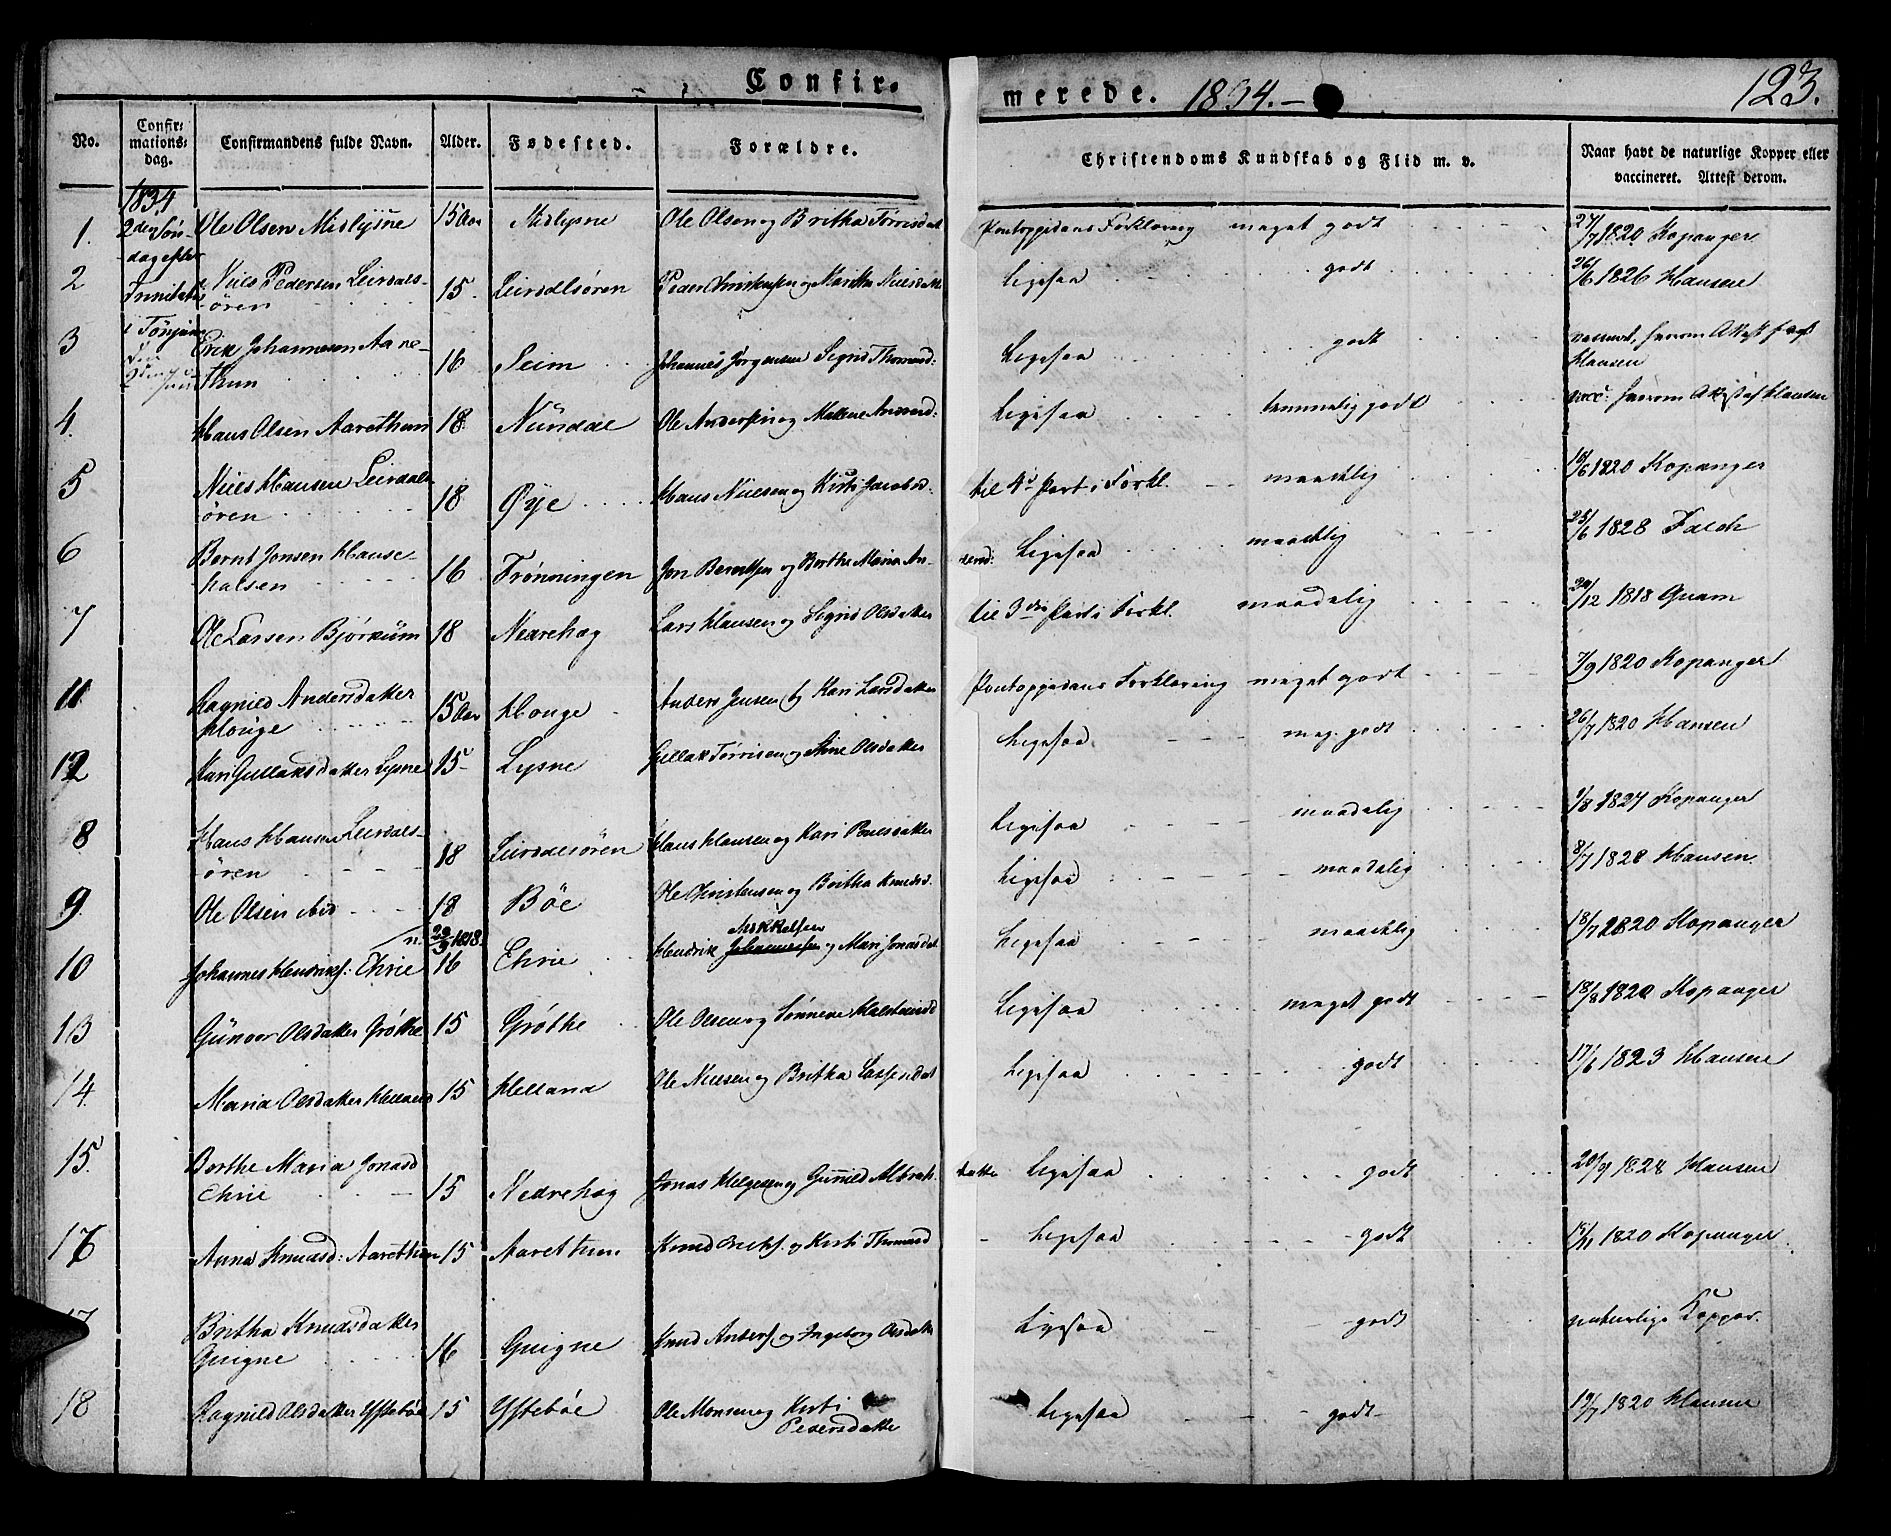 Confir-
merede. 1834. -
123.
No.
Confir-
mations-
dag.
Confirmandens fulde Navn.
Alder.
Fødested.
Forældre.
Christendoms Kundskab og Flid m. v.
Naar havt de naturlige Kopper eller
vaccineret. Attest derom.
1834
2den Søn-
dag efter
1. Ole Olsen Midlysne 15 Aar Midlysne Ole Olsen og Britha Tørrisdat Pontoppidans Forklaring meget godt 27/7 1820 Kopanger
2 Niels Pedersen Leirdals-
ören 15 Leirdalsören Peder og Maritha Nielsdat Ligesaa godt 26/6 1826 Hansen
3 Erik Johannesen Aare-
thun 16 Seim Johannes Jørgensen Sigrid Thomasd: Ligesaa godt Attest fra
Hansen
4. Hans Olsen Aarethun 18 Nündal Ole Andersen og Malene Ligesaa temmelig godt vacc: Attest af Hansen
5 Niels Hansen Leirdals-
ören 18 Øye Hans Nielsen og Kirsti Jacobsd: til 4de Part i Forkl. maadelig 18/6 1820 Kopanger
6 Bernt Jonsen Hause-
halsen 16 Frønningen Jon Berntsen og Berthe Maria An-
dersd: Ligesaa maadelig 25/6 1828 Falch
7 Ole Larsen Bjørkum 18 Nedrehag Lars Hansen og Sigrid Olsdatter til 3die Part i Forkl. maadelig 29/12 1818 Quam
11. Ragnild Andersdatter
Houge 15 Aar Houge Anders Jensen og Kari Larsdatter Pontoppidans Forklaring meget godt 7/9 1820 Kopanger
12 Kari Gullaksdatter Lysne 15 Lysne Gullak Tørrisen og Olsdatter Ligesaa meg. godt 26/7 1820 Hansen
8 Hans Hansen Leirdals-
ören 18 Leirdalsören Hans Hansen og Kari Ligesaa maadelig 1/8 1827 Kopanger
9 Ole Olsen ibid 18 Böe Ole Christensen og Britha Knudsd. Ligesaa maadelig 8/7 1828 Hansen
10 Johannes Hendriks: Ehrie 16 Ehrie Hendrik og Mari Jonasdat Ligesaa maadelig 18/7 1820 Kopanger
13 Günoer Olsdatter Gröthe 15 Gröthe Ole Olsen og Sønneve Ligesaa meget godt 18/8 1820 Kopanger
14. Maria Olsdatter Helland 15 Helland Ole Nielsen og Britha Lassesdat Ligesaa godt 17/6 1823 Hansen
15. Berthe Maria Jonasd
Ehrie 15 Nedrehag Jonas Helgesen og Gunild
datter Ligesaa godt 20/9 1828 Hansen
16 Anna Knudsd: Aarethun 15 Aarethun Knud og Kirsti Thomasd Ligesaa godt 15/11 1820 Kopanger
17 Britha Knudsdatter
Guigne 16 Guigne Knud Anders. og Ingeborg Olsdatter Ligesaa godt naturlige Kopper.
18 Ragnild Olsdatter Ystebøe 15 Ystebøe Ole Monsen og Kirsti
Pedersdatter Ligesaa godt 19/7 1820 Hansen